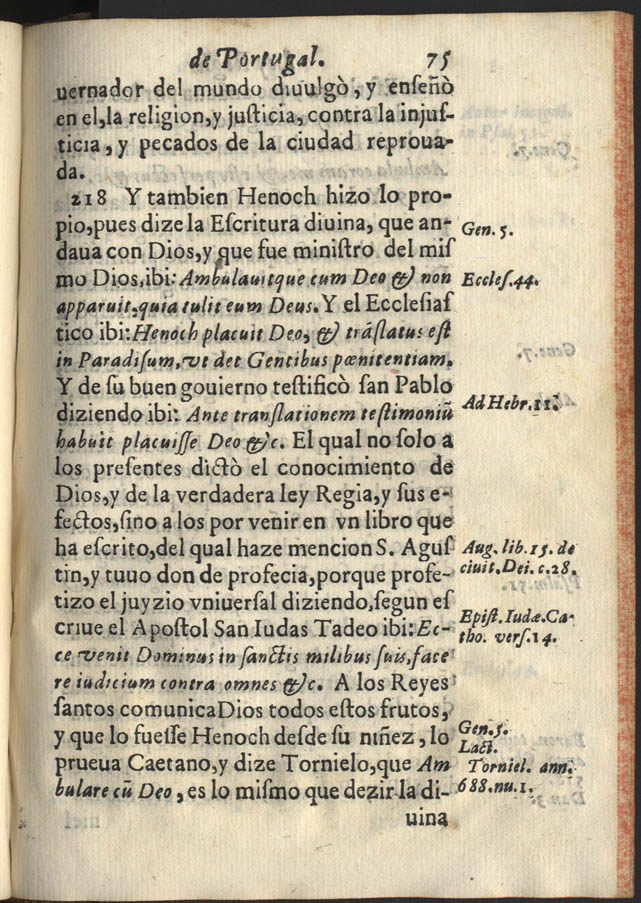 de Portugal. 75
uernador del mundo diuulgò, y enseñò
en el, la religion, y justicia, contra la injus-
ticia, y pecados de la ciudad reproua-
da.
218 Y tambien Henoch hizo lo pro-
pio, pues dize la Escritura diuina, que an-
daua con Dios, y que fue ministro del mis
mo Dios, ibi: Ambulauitque cum Deo & non
apparuit, quia tulit eum Deus. Y el Ecclesias
tico ibi: Henoch placuit Deo, & trãslatus est
in Paradisum, vt det Gentibus pœnitentiam.
Y de su buen gouierno testificò san Pablo
diziendo ibi: Ante translationem testimoniũ
habuit placuisse Deo &c. El qual no solo a
los presentes dictò el conocimiento de
Dios, y de la verdadera ley Regia, y sus e-
fectos, sino a los por venir en vn libro que
ha escrito, del qual haze mencion S. Agus
tin, y tuuo don de profecia, porque profe-
tizo el juyzio vniuersal diziendo, segun es
criue el Apostol San Iudas Tadeo ibi: Ec-
ce venit Dominus in sanctis milibus suis, face
re iudicium contra omnes &c. A los Reyes
santos comunica Dios todos estos frutos,
y que lo fuesse Henoch desde su niñez, lo
prueua Caetano, y dize Tornielo, que Am
bulare cũ Deo, es lo mismo que dezir la di-
uina
Gen. 5.
Eccles. 44.
Ad Hebr. 11.
Aug. lib. 15. de
ciuit. Dei. c. 28.
Epist. Iudæ. Ca-
tho. vers. 14.
Gen. 5.
Lact.
Torniel. ann.
688. nu. 1.